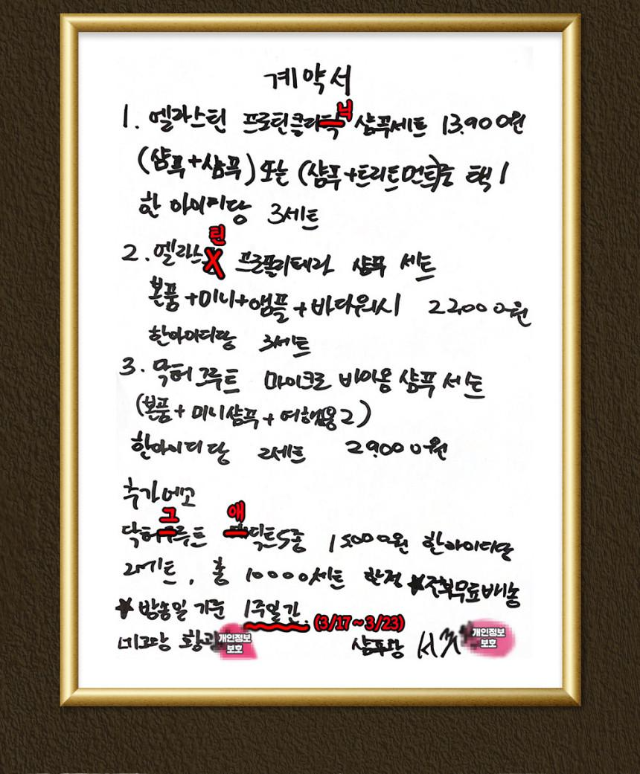 계약서
1. 엘라스틴 프로틴클리닉 샴푸세트 13,900원
(샴푸+샴푸) 또는 (샴푸+트리트먼트)중 택1
한 아이디당 3세트
2. 엘라스틴 프로폴리테라 샴푸 세트
본품+미니+앰플+바디워시 22000원
한아이디당 3세트
3. 닥터그루트 마이크로 바이옴 샴푸 세트
(본품+미니샴푸+여행용2)
한아이디당 2세트 29000원
추가예고
닥터그루트 애딕트5종 15000원 한아이디당
2세트, 총 10000세트 한정 *전부무료배송
*방송일 기준 1주일간 (3/17~3/23)
황 개인정보
보호
샴푸당 서 개인정보
보호